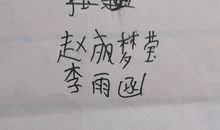 赵成梦莹
李雨函